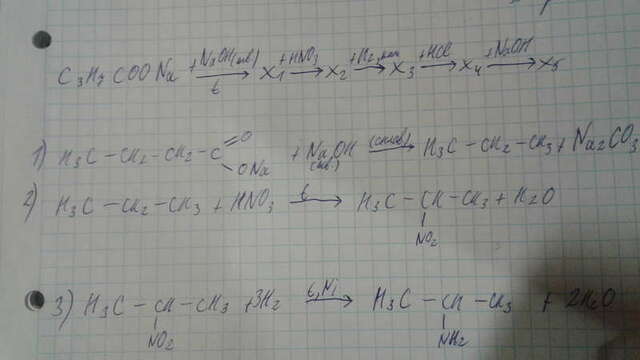 C₃H₇COONa +NaOH(тв)/t → X₁ +HNO₃ → X₂ +H₂, кат → X₃ +HCl → X₄ +NaOH → X₅
1) H₃C–CH₂–CH₂–C(=O)ONa + NaOH (тв.) (сплав) → H₃C–CH₂–CH₃ + Na₂CO₃
2) H₃C–CH₂–CH₃ + HNO₃ t → H₃C–CH–CH₃ + H₂O
NO₂
3) H₃C–CH–CH₃ +3H₂ t, Ni → H₃C–CH–CH₃ + 2H₂O
NO₂ NH₂